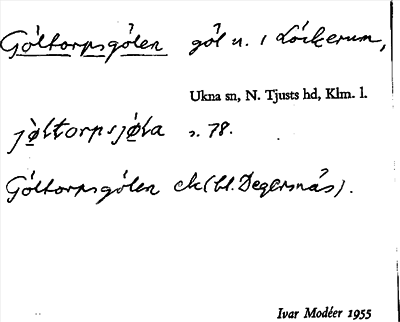 Göltorpsgölen göl n. i Löckerum,
Ukna sn, N. Tjusts hd, Klm. l.
jøltorpsjøla s. 78.
Göltorpsgölen ek (bl. Degersnäs).
Ivar Modéer 1955